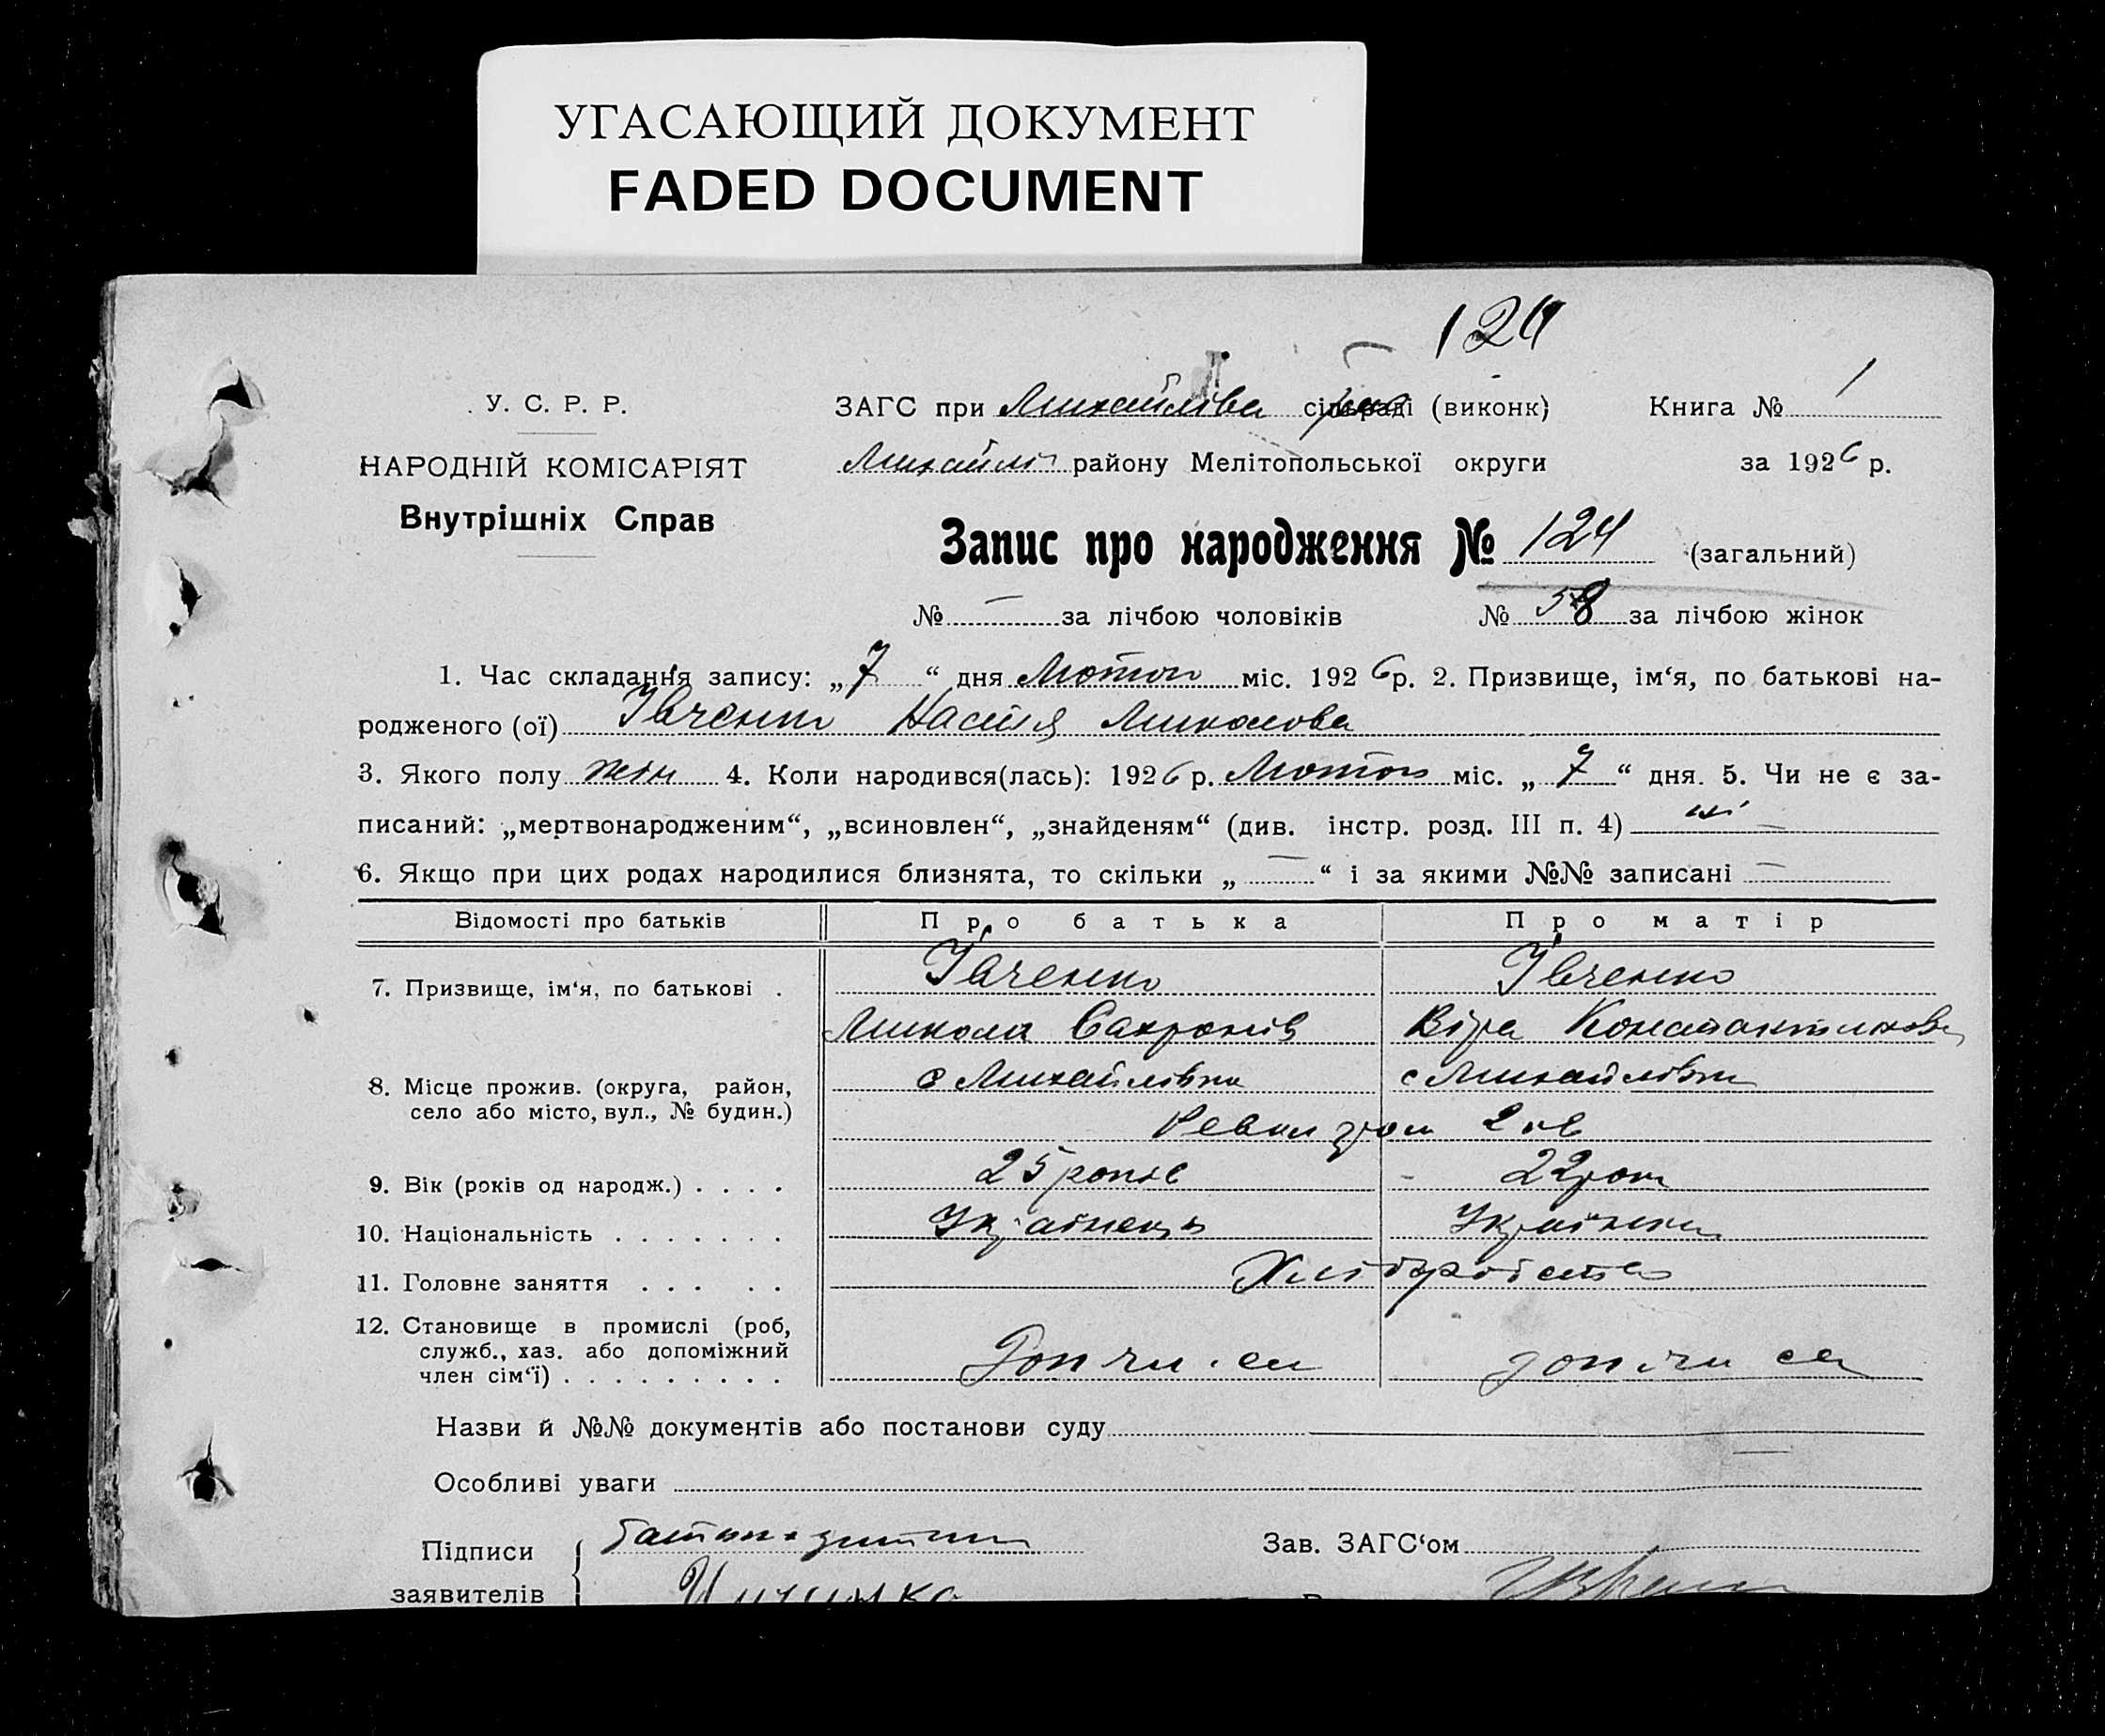 УГАСАЮЩИЙ ДОКУМЕНТ
FADED DOCUMENT
124
У. С. Р. Р.
НАРОДНІЙ КОМІСАРІЯТ
Внутрішніх Справ
ЗАГС при Михайлівс сільраді (виконк)
Книга № 1
Михайлів району Мелітопольської округи
за 1926 р.
Запис про народження № 124 (загальний)
№ — за лічбою чоловіків № 58 за лічбою жінок
1. Час складання запису: „7“ дня Лютого міс. 1926 р. 2. Призвище, ім‘я, по батькові на-
родженого (ої) Івченко Настя Миколова
3. Якого полу жін 4. Коли народився(лась): 1926 р. Лютого міс. „7“ дня. 5. Чи не є за-
писаний: „мертвонародженим“, „всиновлен“, „знайденям“ (див. інстр. розд. III п. 4) ні —
6. Якщо при цих родах народилися близнята, то скільки „—“ і за якими №№ записані —
Відомості про батьків Про батька Про матір
7. Призвище, ім‘я, по батькові . Івченко Івченко
Микола Віра Константинова
8. Місце прожив. (округа, район, село або місто, вул., № будин.) с Михайлівка с Михайлівка
9. Вік (років од народж.) . . . . 25 років 22 рок
10. Національність . . . . . . . Українець Українка
11. Головне заняття . . . . . Хліборобство
12. Становище в промислі (роб,
служб., хаз. або допоміжний
член сім‘ї) . . . . . . . . .
Назви й №№ документів або постанови суду
Особливі уваги
Підписи
заявителів
Зав. ЗАГС‘ом